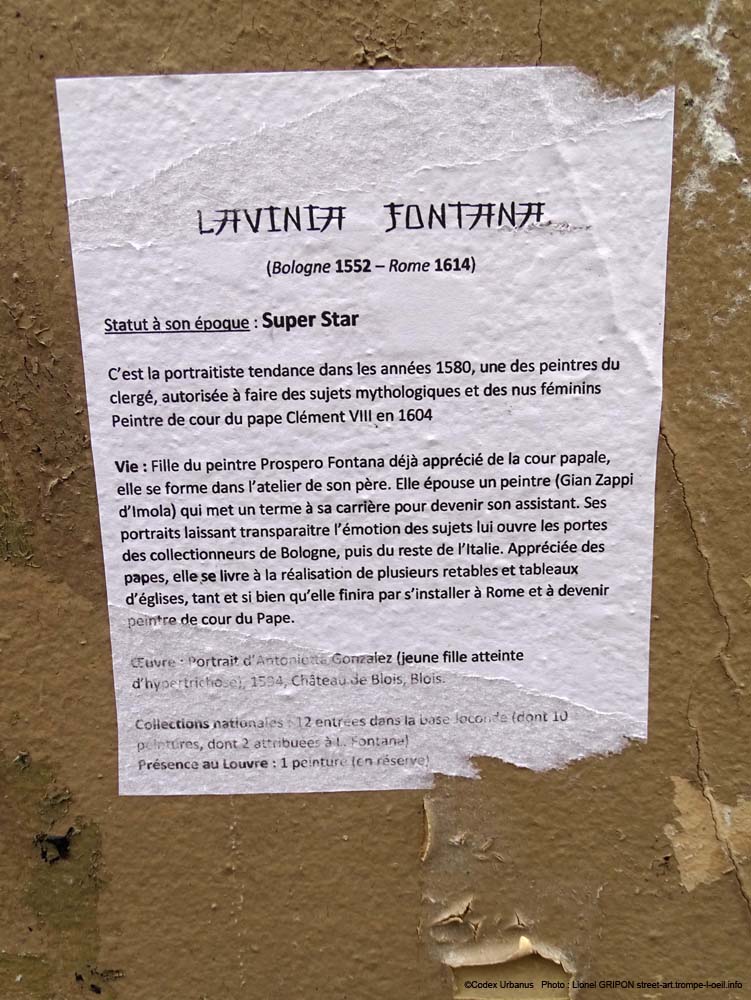 LAVINIA FONTANA
(Bologne 1552 – Rome 1614)
Statut à son époque : Super Star
C'est la portraitiste tendance dans les années 1580, une des peintres du
clergé, autorisée à faire des sujets mythologiques et des nus féminins
Peintre de cour du pape Clément VIII en 1604
Vie : Fille du peintre Prospero Fontana déjà apprécié de la cour papale,
elle se forme dans l'atelier de son père. Elle épouse un peintre (Gian Zappi
d'Imola) qui met un terme à sa carrière pour devenir son assistant. Ses
portraits laissant transparaitre l'émotion des sujets lui ouvre les portes
des collectionneurs de Bologne, puis du reste de l'Italie. Appréciée des
papes, elle se livre à la réalisation de plusieurs retables et tableaux
d'églises, tant et si bien qu'elle finira par s'installer à Rome et à devenir
peintre de cour du Pape.
Œuvre : Portrait d'Antonietta Gonzalez (jeune fille atteinte
d'hypertrichose), 1594, Château de Blois, Blois.
Collections nationales : 12 entrées dans la base Joconde (dont 10
peintures, dont 2 attribuées à L. Fontana)
Présence au Louvre : 1 peinture (en réserve)
©Codex Urbanus Photo : Lionel GRIPON street-art.trompe-l-oeil.info